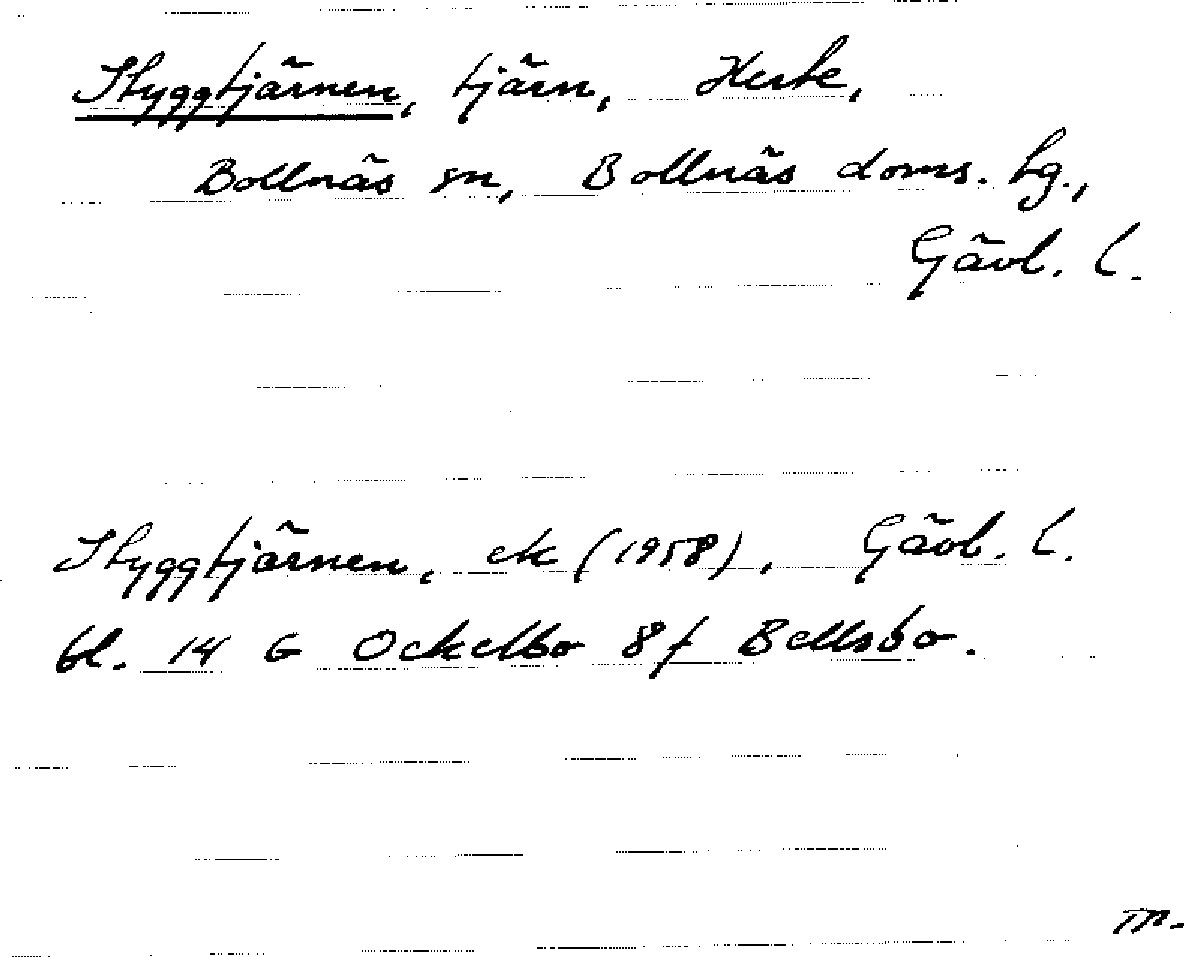 Styggtjärnen, tjärn, Herte,
Bollnäs sn, Bollnäs doms. hg.,
Gävl. l.
Styggtjärnen, ek (1958), Gävl. l.
bl. 14 G Ockelbo 8f Bellsbo.